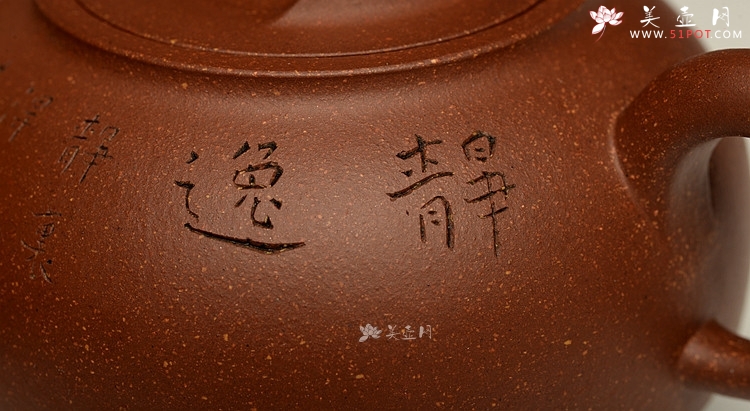 美壶月
WWW.51POT.COM
靜逸
靜
美壶月